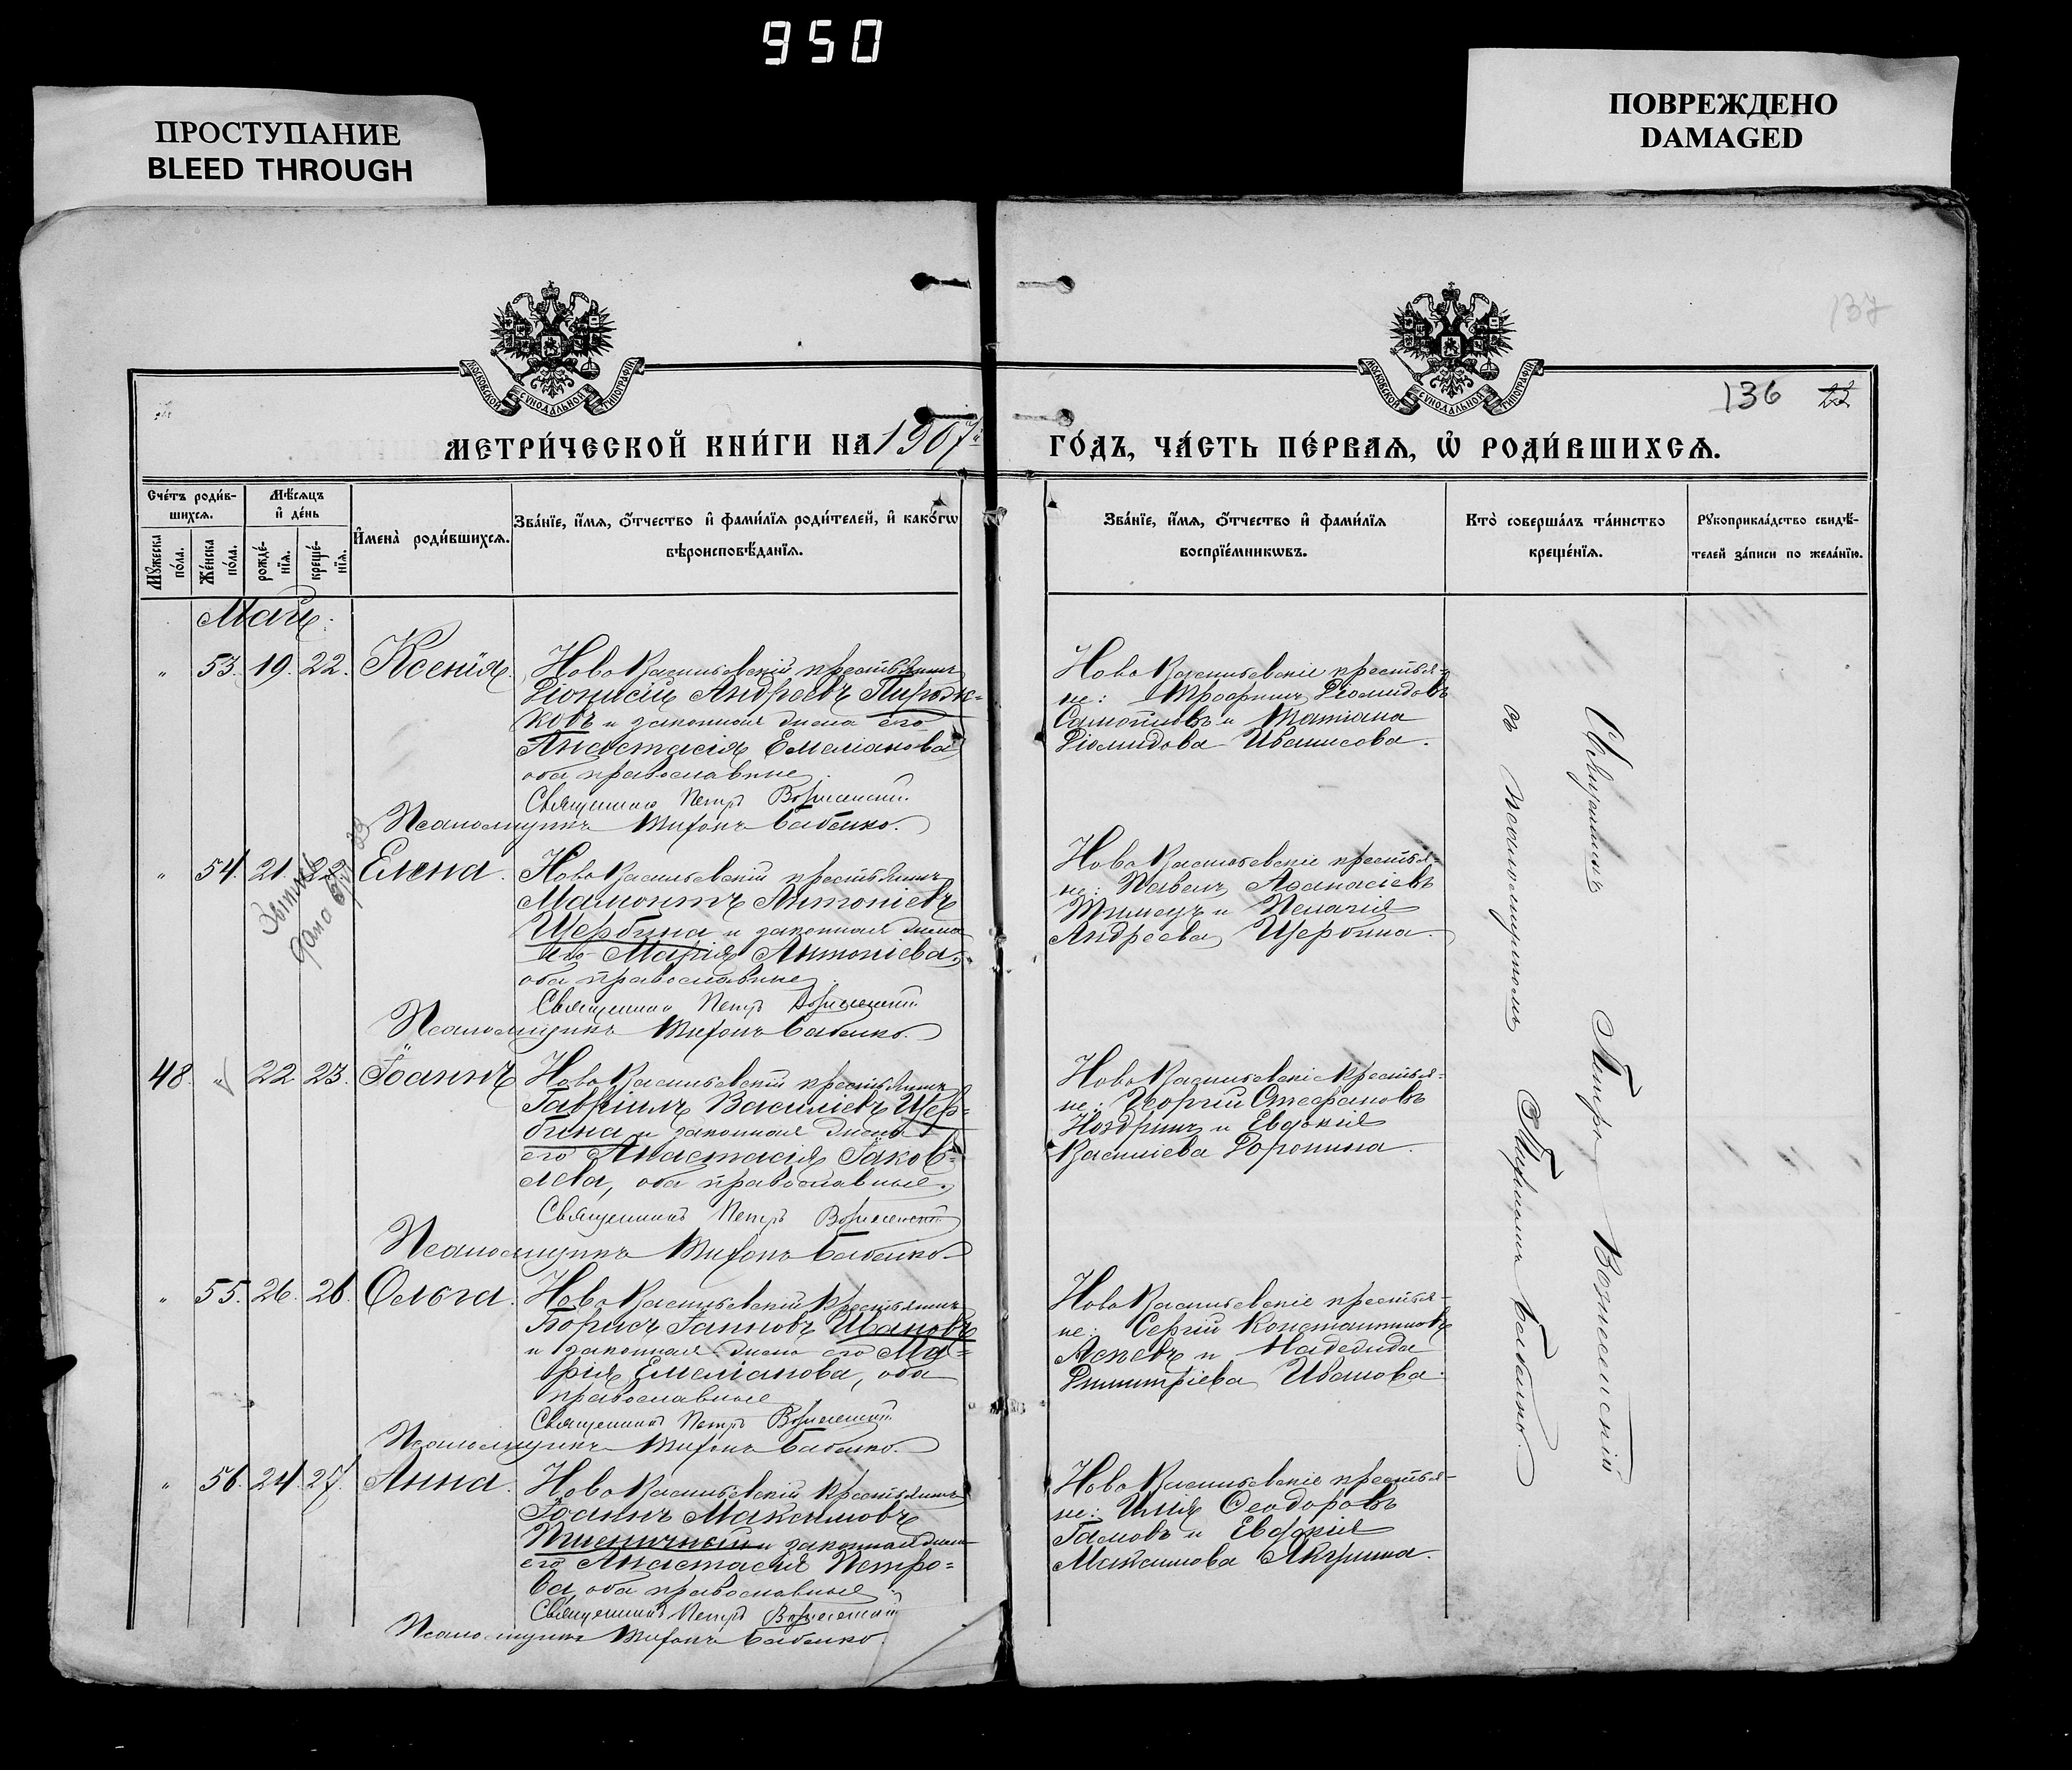 950
ПРОСТУПАНИЕ
BLEED THROUGH
ПОВРЕЖДЕНО
DAMAGED
137
136 22
МОСКОВСКОЙ СѴНОДАЛЬНОЙ ТИПОГРАФІИ
МОСКОВСКОЙ СѴНОДАЛЬНОЙ ТИПОГРАФІИ
МЕТРИ́ЧЕСКОЙ КНИ́ГИ НА 1907й
ГО́ДЪ, ЧА́СТЬ ПЕ́РВАѦ, Ѽ РОДИ́ВШИХСѦ.
Сче́тъ роди́в-
шихсѧ.
Мꙋ́жеска по́ла.
Же́нска по́ла.
Мѣ́сѧцъ
и҆ де́нь
рожде́-
нїѧ.
креще́-
нїѧ.
И҆мена̀ роди́вшихсѧ.
Зва́нїе, и҆́мѧ, ѻ҆́тчество и҆ фами́лїѧ роди́телей, и҆ како́гѡ
вѣроисповѣ́данїѧ.
Зва́нїе, и҆́мѧ, ѻ҆́тчество и҆ фами́лїѧ
воспрїе́мникѡвъ.
Кто̀ соверша́лъ та́инство
креще́нїѧ.
Рꙋкоприкла́дство свидѣ́-
телей за́писи по жела́нїю.
Май.
" 53. 19. 22. Ксенія.
Ново Васильевскій крестьянинъ
Діонисій Андреевъ Пирож-
ковъ и законная жена его
Анастасія Емеліанова
оба православные.
Священникъ Петръ Вознесенскій
Псаломщикъ Тихонъ Бабенко.
Ново Васильевскіе крестья-
не: Трофимъ Діомидовъ
Самойловъ и Татіана
Діомидова Иванисова.
" 54. 21. 22. Елена.
дано
Ново Васильевскій крестьянинъ
Мамонтъ Антоніевъ
Щербина и законная жена
его Марія Антоніева,
оба православные
Священникъ Петръ Вознесенскій
Псаломщикъ Тихонъ Бабенко.
Ново Васильевскіе крестья-
не: Павелъ Аѳанасіевъ
и Пелагія
Андреева Щербина.
48. " 22. 23. Іоаннъ
Ново Васильевскій крестьянинъ
Гавріилъ Василіевъ Щер-
бина и законная жена
его Анастасія Іаков-
лева, оба православные.
Священникъ Петръ Вознесенскій
Псаломщикъ Тихонъ Бабенко.
Ново Васильевскіе крестья-
не: Георгій Стефановъ
Ноздринъ и Евдокія
Василіева Доронина.
" 55. 26. 26. Ольга.
Ново Васильевскій крестьянинъ
Борисъ Іанновъ Ивановъ
и законная жена его Ма-
рія Емеліанова, оба
православные
Священникъ Петръ Вознесенскій
Псаломщикъ Тихонъ Бабенко.
Ново Васильевскіе крестья-
не: Сергій Константиновъ
и Надежда
Димитріева Иванова.
" 56. 24. 27. Анна.
Ново Васильевскій крестьянинъ
Іоаннъ Максимовъ
Пшеничный и законная жена
его Анастасія Петро-
ва, оба православные
Священникъ Петръ Вознесенскій
Псаломщикъ Тихонъ Бабенко.
Ново Васильевскіе крестья-
не: Илія Ѳеодоровъ
Гамовъ и Евдокія
Максимова Якунина.
Священникъ Петръ Вознесенскій
съ псаломщикомъ Тихономъ Бабенко.